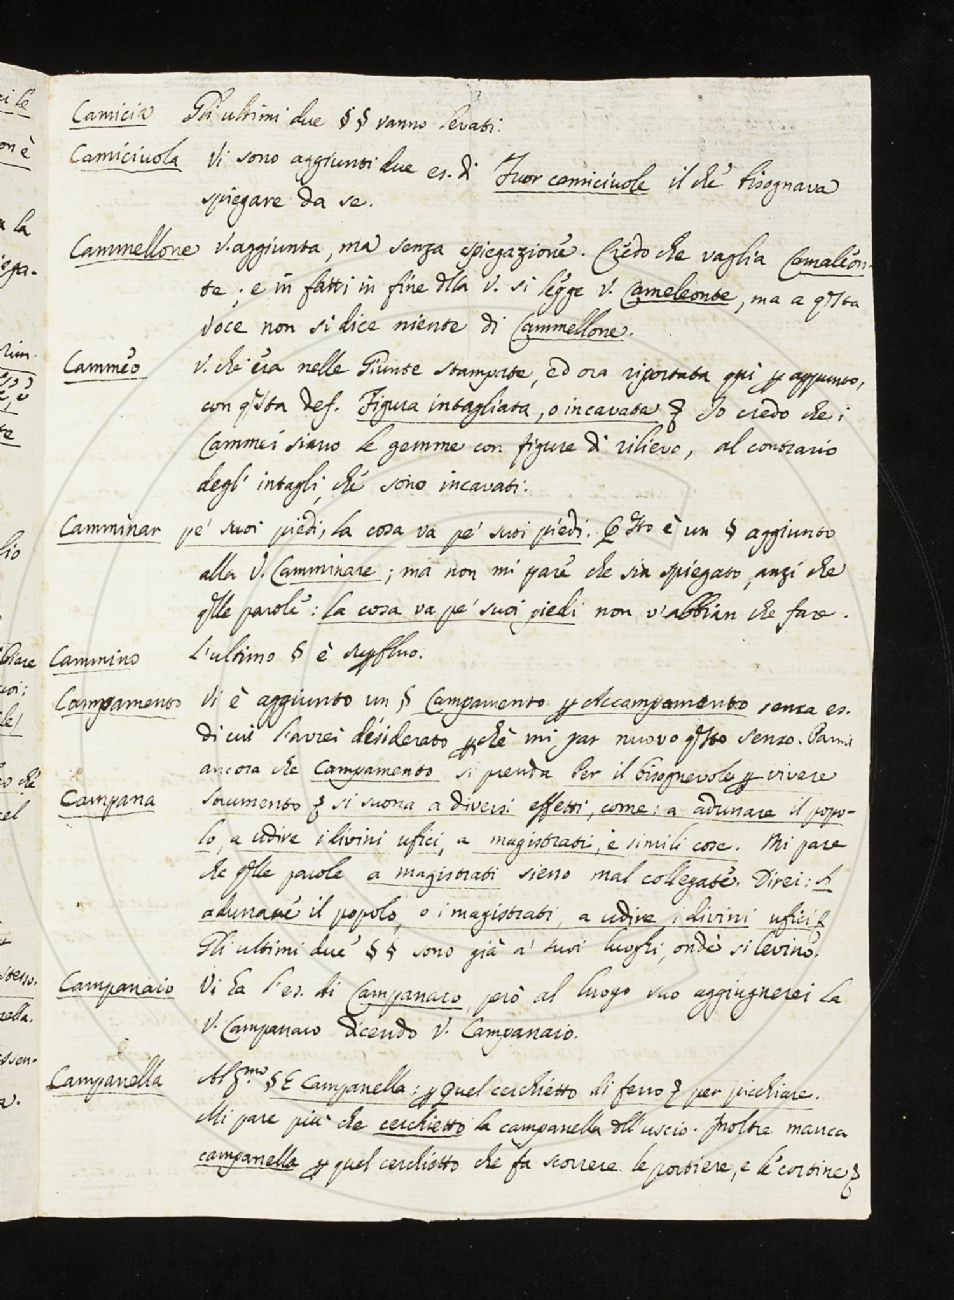 Camicia Gli ultimi due § § vanno levati.
Camiciuola Vi sono aggiunti due es. di Fuor camiciuole il che bisognava
spiegare da se.
Cammellone V. aggiunta, ma senza spiegazione. Credo che vaglia Camaleon-
te; e in fatti in fine dlla V. si legge V. Cameleonte, ma a qsta
voce non si dice niente di Cammellone.
Cammeo V. ch'era nelle Giunte stampate, ed ora riportata qui p appunto,
con qsta def. Figura intagliata, o incavata Io credo che i
Cammei siano le gemme con figure di rilievo, al contrario
degl' intagli, che sono incavati.
Camminar pe' suoi piedi, la cosa va pe' suoi piedi. Qsto è un § aggiunto
alla V. Camminare; ma non mi pare che sia spiegato, anzi che
qlle parole: la cosa va pe' suoi piedi non v'abbian che fare.
Cammino L'ultimo § è supfluo.
Campamento Vi è aggiunto un § Campamento p Accampamento senza es.
di cui l'avrei desiderato pchè mi par nuovo qsto senso. Parmi
ancora che Campamento si prenda Per il bisognevole p vivere
Campana Strumento si suona a diversi effetti, come: a adunare il popo-
lo, a udire i divini ufici, a magistrati, e simili cose. Mi pare
che qlle parole a magistrati sieno mal collegate. Direi: A
adunare il popolo, o i magistrati, a udire i divini ufici
Gli ultimi due § § sono già a' suoi luoghi, onde si levino.
Campanaio Vi ha l'es. di Campanaro, però al luogo suo aggiugnerei la
V. Campanaro dicendo V. Campanaio.
Campanella § E Campanella: p Quel cerchietto di ferro per picchiare.
Mi pare più che cerchietto la campanella dll'uscio. Inoltre manca
campanella p quel cerchietto che fa scorrere le portiere, e le cortine